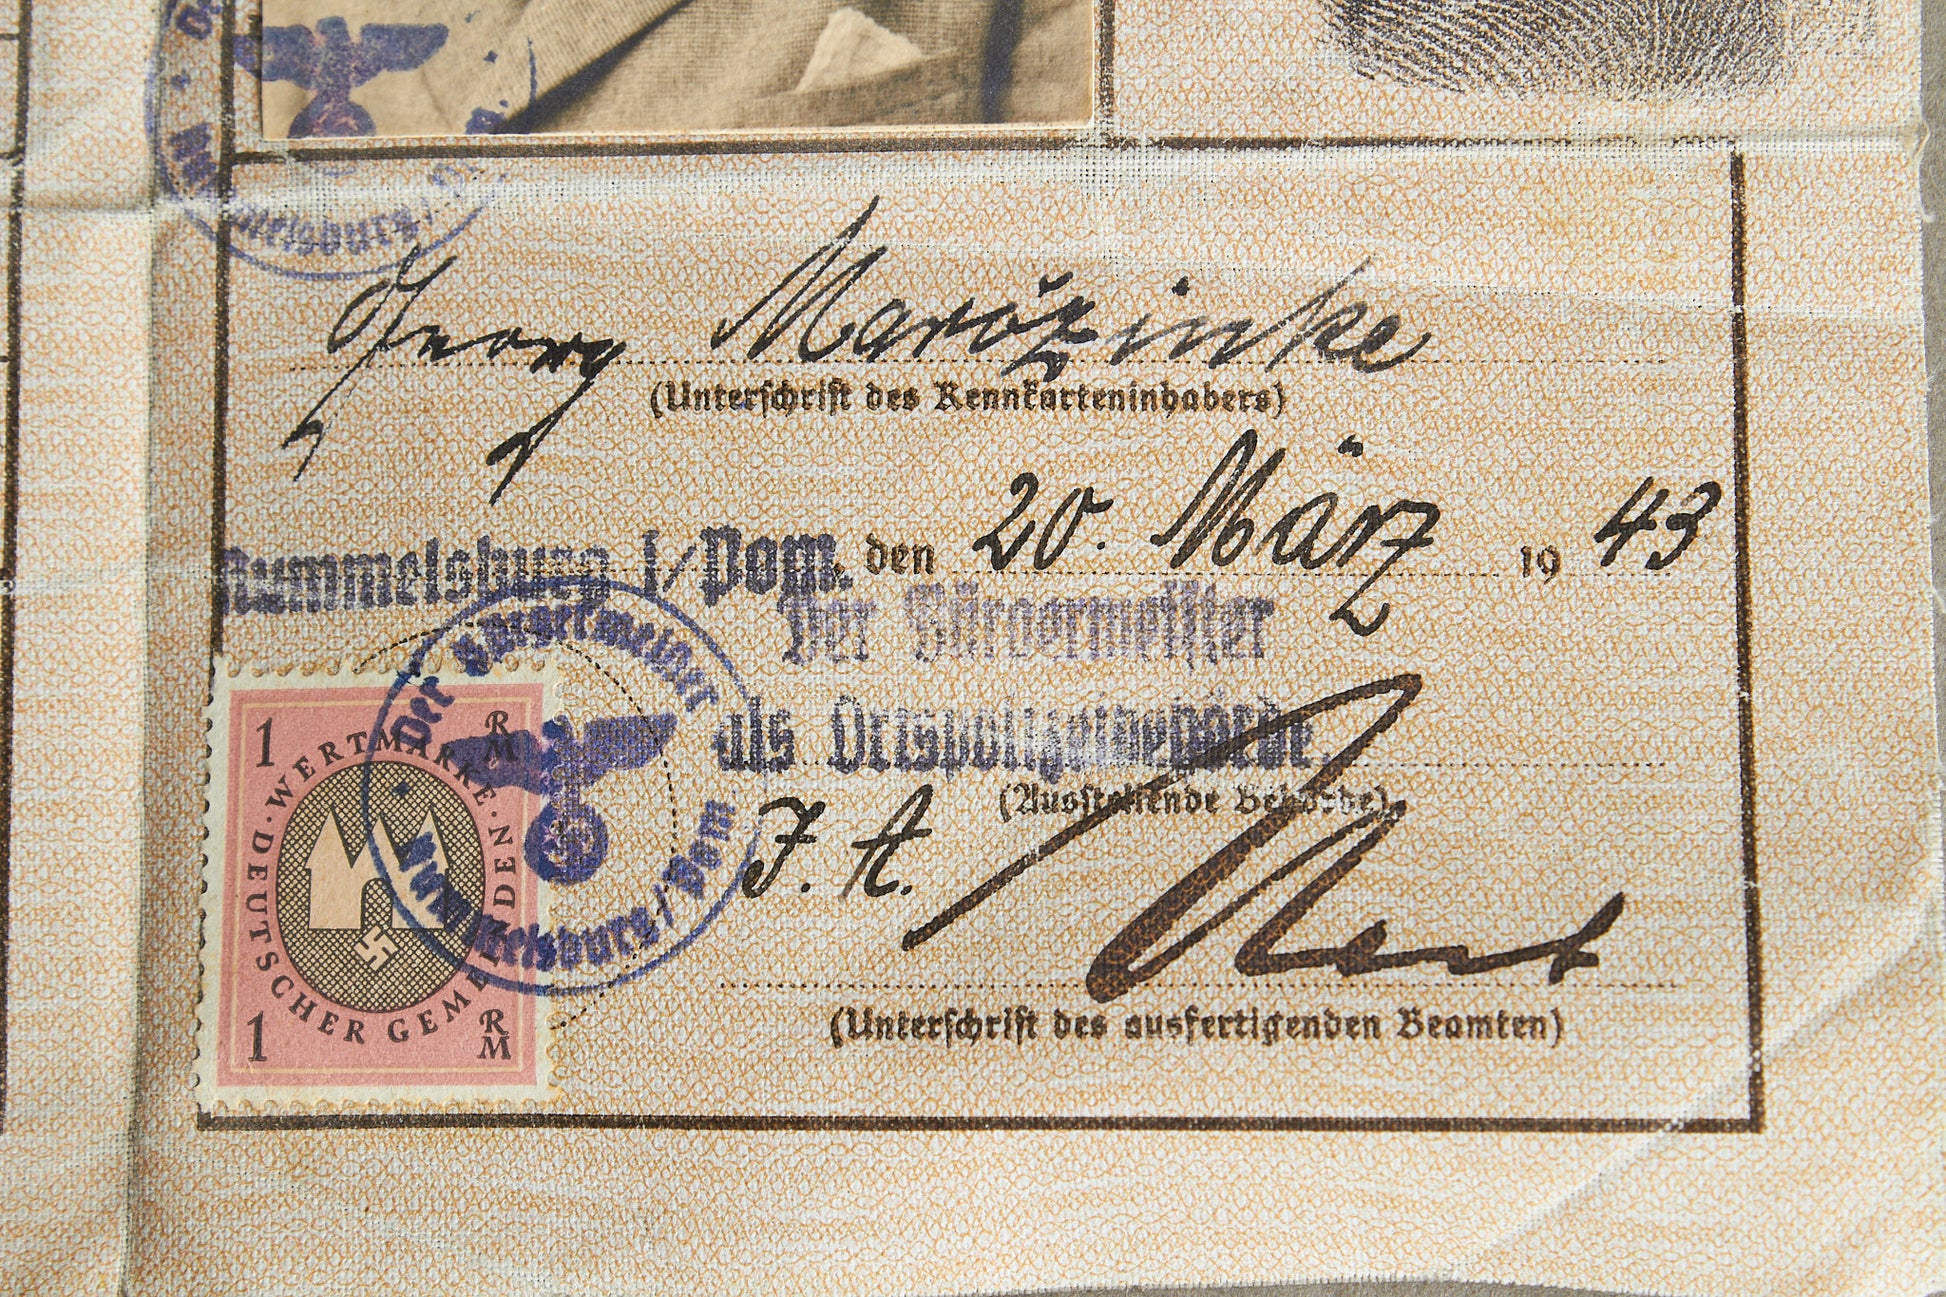 melsburg /
Georg Marozinke
(Unterschrift des Kennkarteninhabers)
Rummelsburg i/Pom. den 20. März 1943
Der Bürgermeister
als Ortspolizeibehörde.
(Ausstellende Behörde)
J. A.
(Unterschrift des ausfertigenden Beamten)
Der Bürgermeister
Rummelsburg/Pom
1 RM
· WERTMARKE · DEUTSCHER GEMEINDEN
1 RM